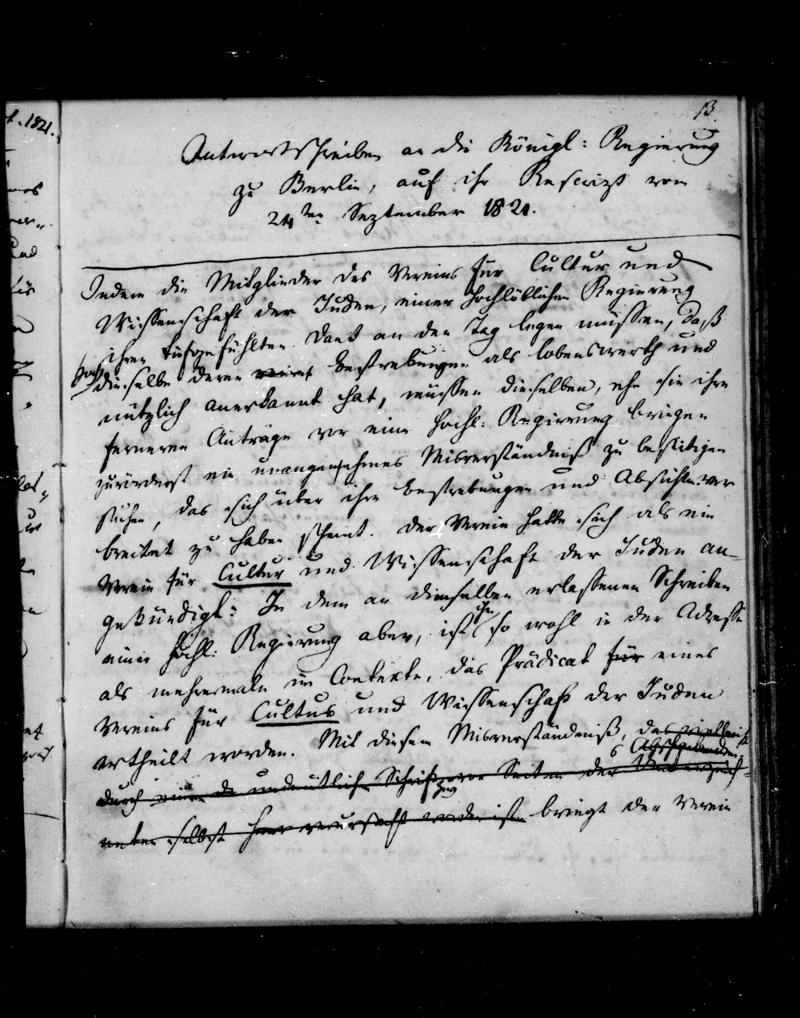 13
Antwortschreiben an die Königl: Regierung
zu Berlin, auf ihr Rescript vom
24ten September 1821.
Indem die Mitglieder des Vereins für Cultur und
Wissenschaft der Juden, einer Hochlöblichen Regierung
ihren tiefgefühlten Dank an den Tag legen müssen, daß
dieselbe deren Bestrebungen als lobenswerth und
nützlich anerkannt hat, müssen dieselben, ehe sie ihre
ferneren Anträge vor eine Hochl: Regierung bringen
zuvörderst ein unangenehmes Misverständniß zu beseitigen
suchen, das sich über ihre Bestrebungen und Absichten ver
breitet zu haben scheint. Der Verein hatte sich als ein
Verein für Cultur und Wissenschaft der Juden an-
gekündigt: In dem an denselben erlassenen Schreiben
einer Hochl: Regierung aber, ist ihm so wohl in der Adresse
als mehremale im Contexte, das Prädicat für eines
Vereins für Cultus und Wissenschaft der Juden
ertheilt worden. Mit diesem Misverständniß, das vielleicht
durch eine undeutliche Schrift von Seiten der
selbst verursacht worden ist bringt der Verein
1821.